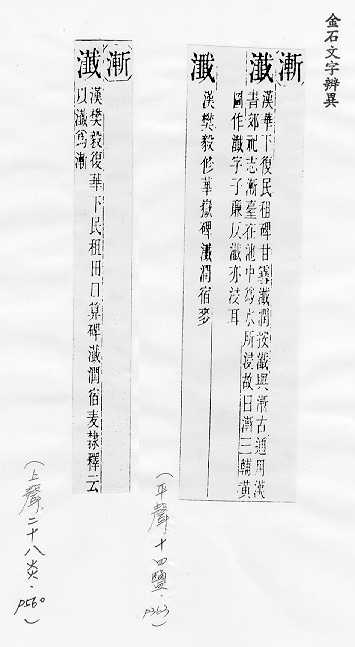 金石文字辨異
漸
瀸 漢華下復民租碑甘露瀸潤按瀸與漸古通用漢
書郊祀志漸臺在池中爲水所浸故曰漸三輔黃
圖作瀸字子廉反瀸亦浸耳
瀸 漢樊毅修華嶽碑瀸潤宿麥
(平聲.十四鹽.p363)
漸
瀸 漢樊毅復華下民租田口算碑瀸潤宿麦隸釋云
以瀸爲漸
(上聲.二十八炎.p560)